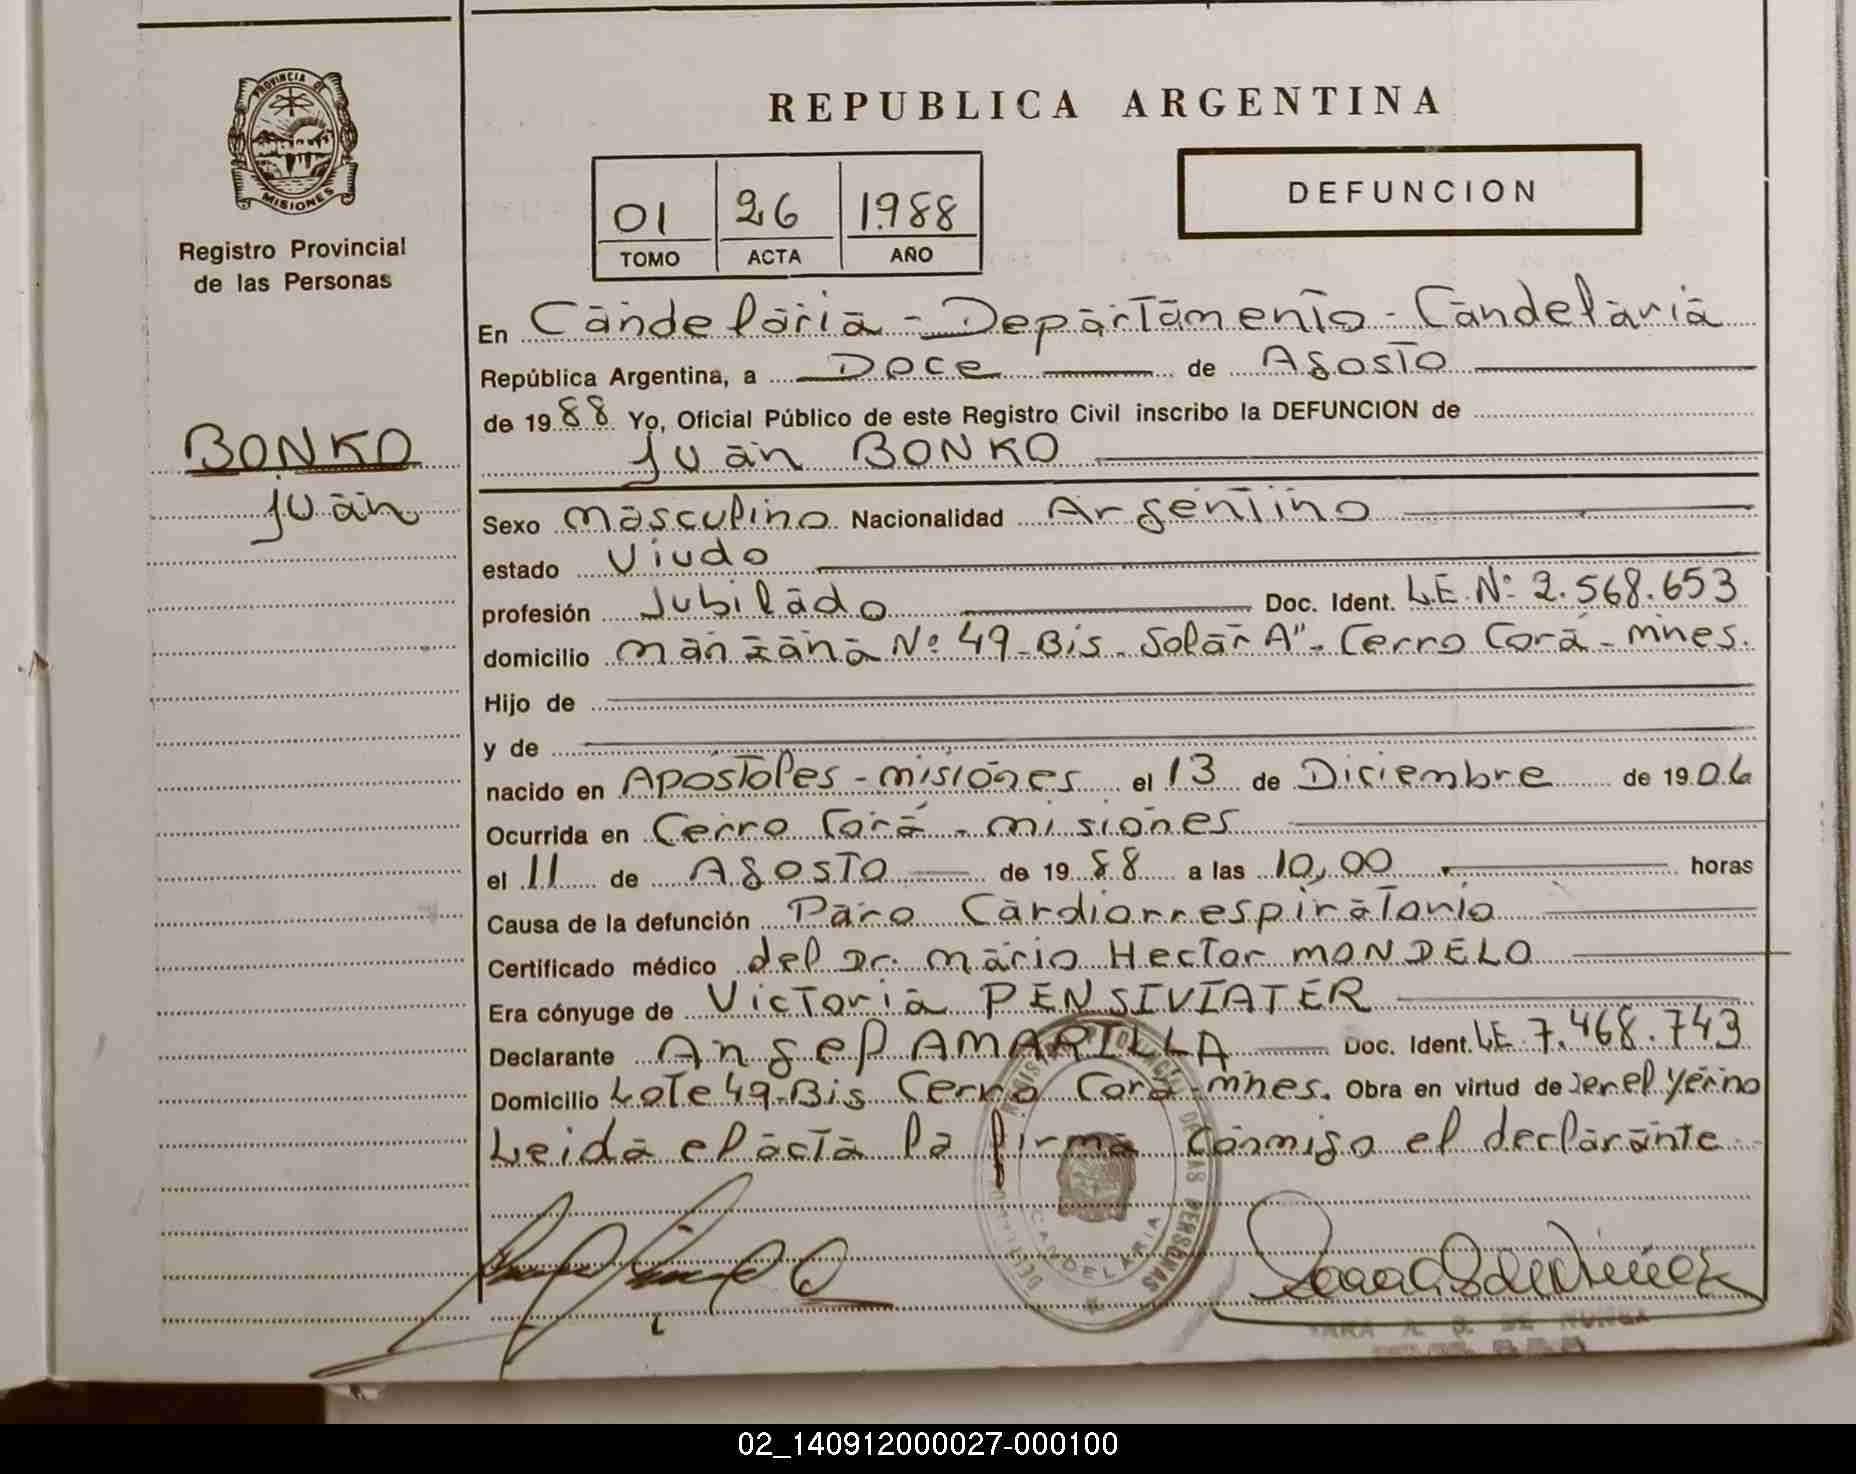 PROVINCIA DE
MISIONES
Registro Provincial
de las Personas
BONKO
Juan
REPUBLICA ARGENTINA
01 26 1988
TOMO ACTA AÑO
DEFUNCION
En Candelaria - Departamento - Candelaria
República Argentina, a Doce de Agosto
de 1988 Yo, Oficial Público de este Registro Civil inscribo la DEFUNCION de
Juan BONKO
Sexo masculino Nacionalidad Argentino
estado Viudo
profesión Jubilado Doc. Ident. L.E. Nº 2.568.653
domicilio manzana Nº 49-Bis - Solar A" - Cerro Corá - mnes.
Hijo de
y de
nacido en Apóstoles - misiones el 13 de Diciembre de 1906
Ocurrida en Cerro Corá - misiones
el 11 de Agosto de 1988 a las 10,00 horas
Causa de la defunción Paro Cardiorrespiratorio
Certificado médico del Dr. Mario Hector MONDELO
Era cónyuge de Victoria PENSIVIATER
Declarante Angel AMARILLA Doc. Ident. LE 7.468.743
Domicilio Lote 49-Bis Cerro Corá - mnes. Obra en virtud de ser el Yerno
Leida el acta la firma conmigo el declarante
CANDELARIA
02_140912000027-000100